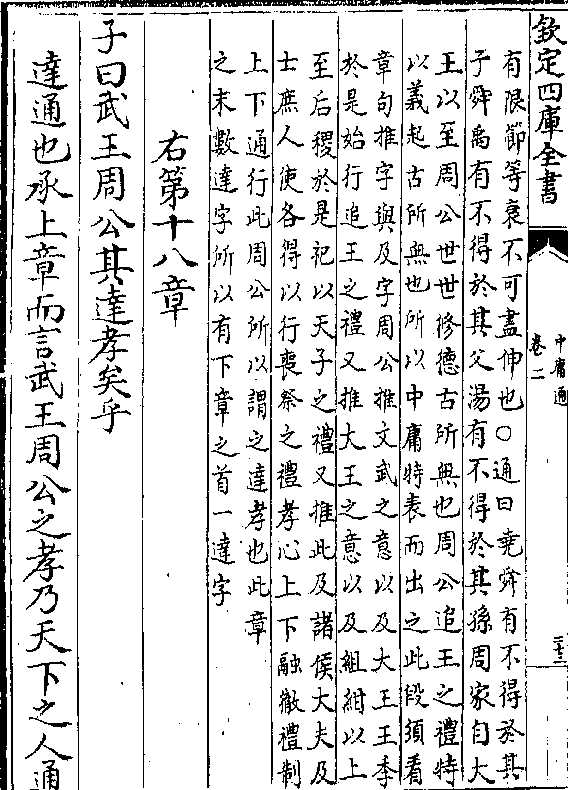 欽定四庫全書
中庸通
卷二
三十三
有限節等衰不可盡伸也○通曰堯舜有不得於其
子舜禹有不得於其父湯有不得於其孫周家自大
王以至周公世世修德古所無也周公追王之禮特
以義起古所無也所以中庸特表而出之此段須看
章句推字與及字周公推文武之意以及大王王季
於是始行追王之禮又推大王之意以及組紺以上
至后稷於是祀以天子之禮又推此及諸侯大夫及
士庶人使各得以行喪祭之禮孝心上下融徹禮制
上下通行此周公所以謂之達孝也此章
之末數達字所以有下章之首一達字
右第十八章
子曰武王周公其達孝矣乎
達通也承上章而言武王周公之孝乃天下之人通